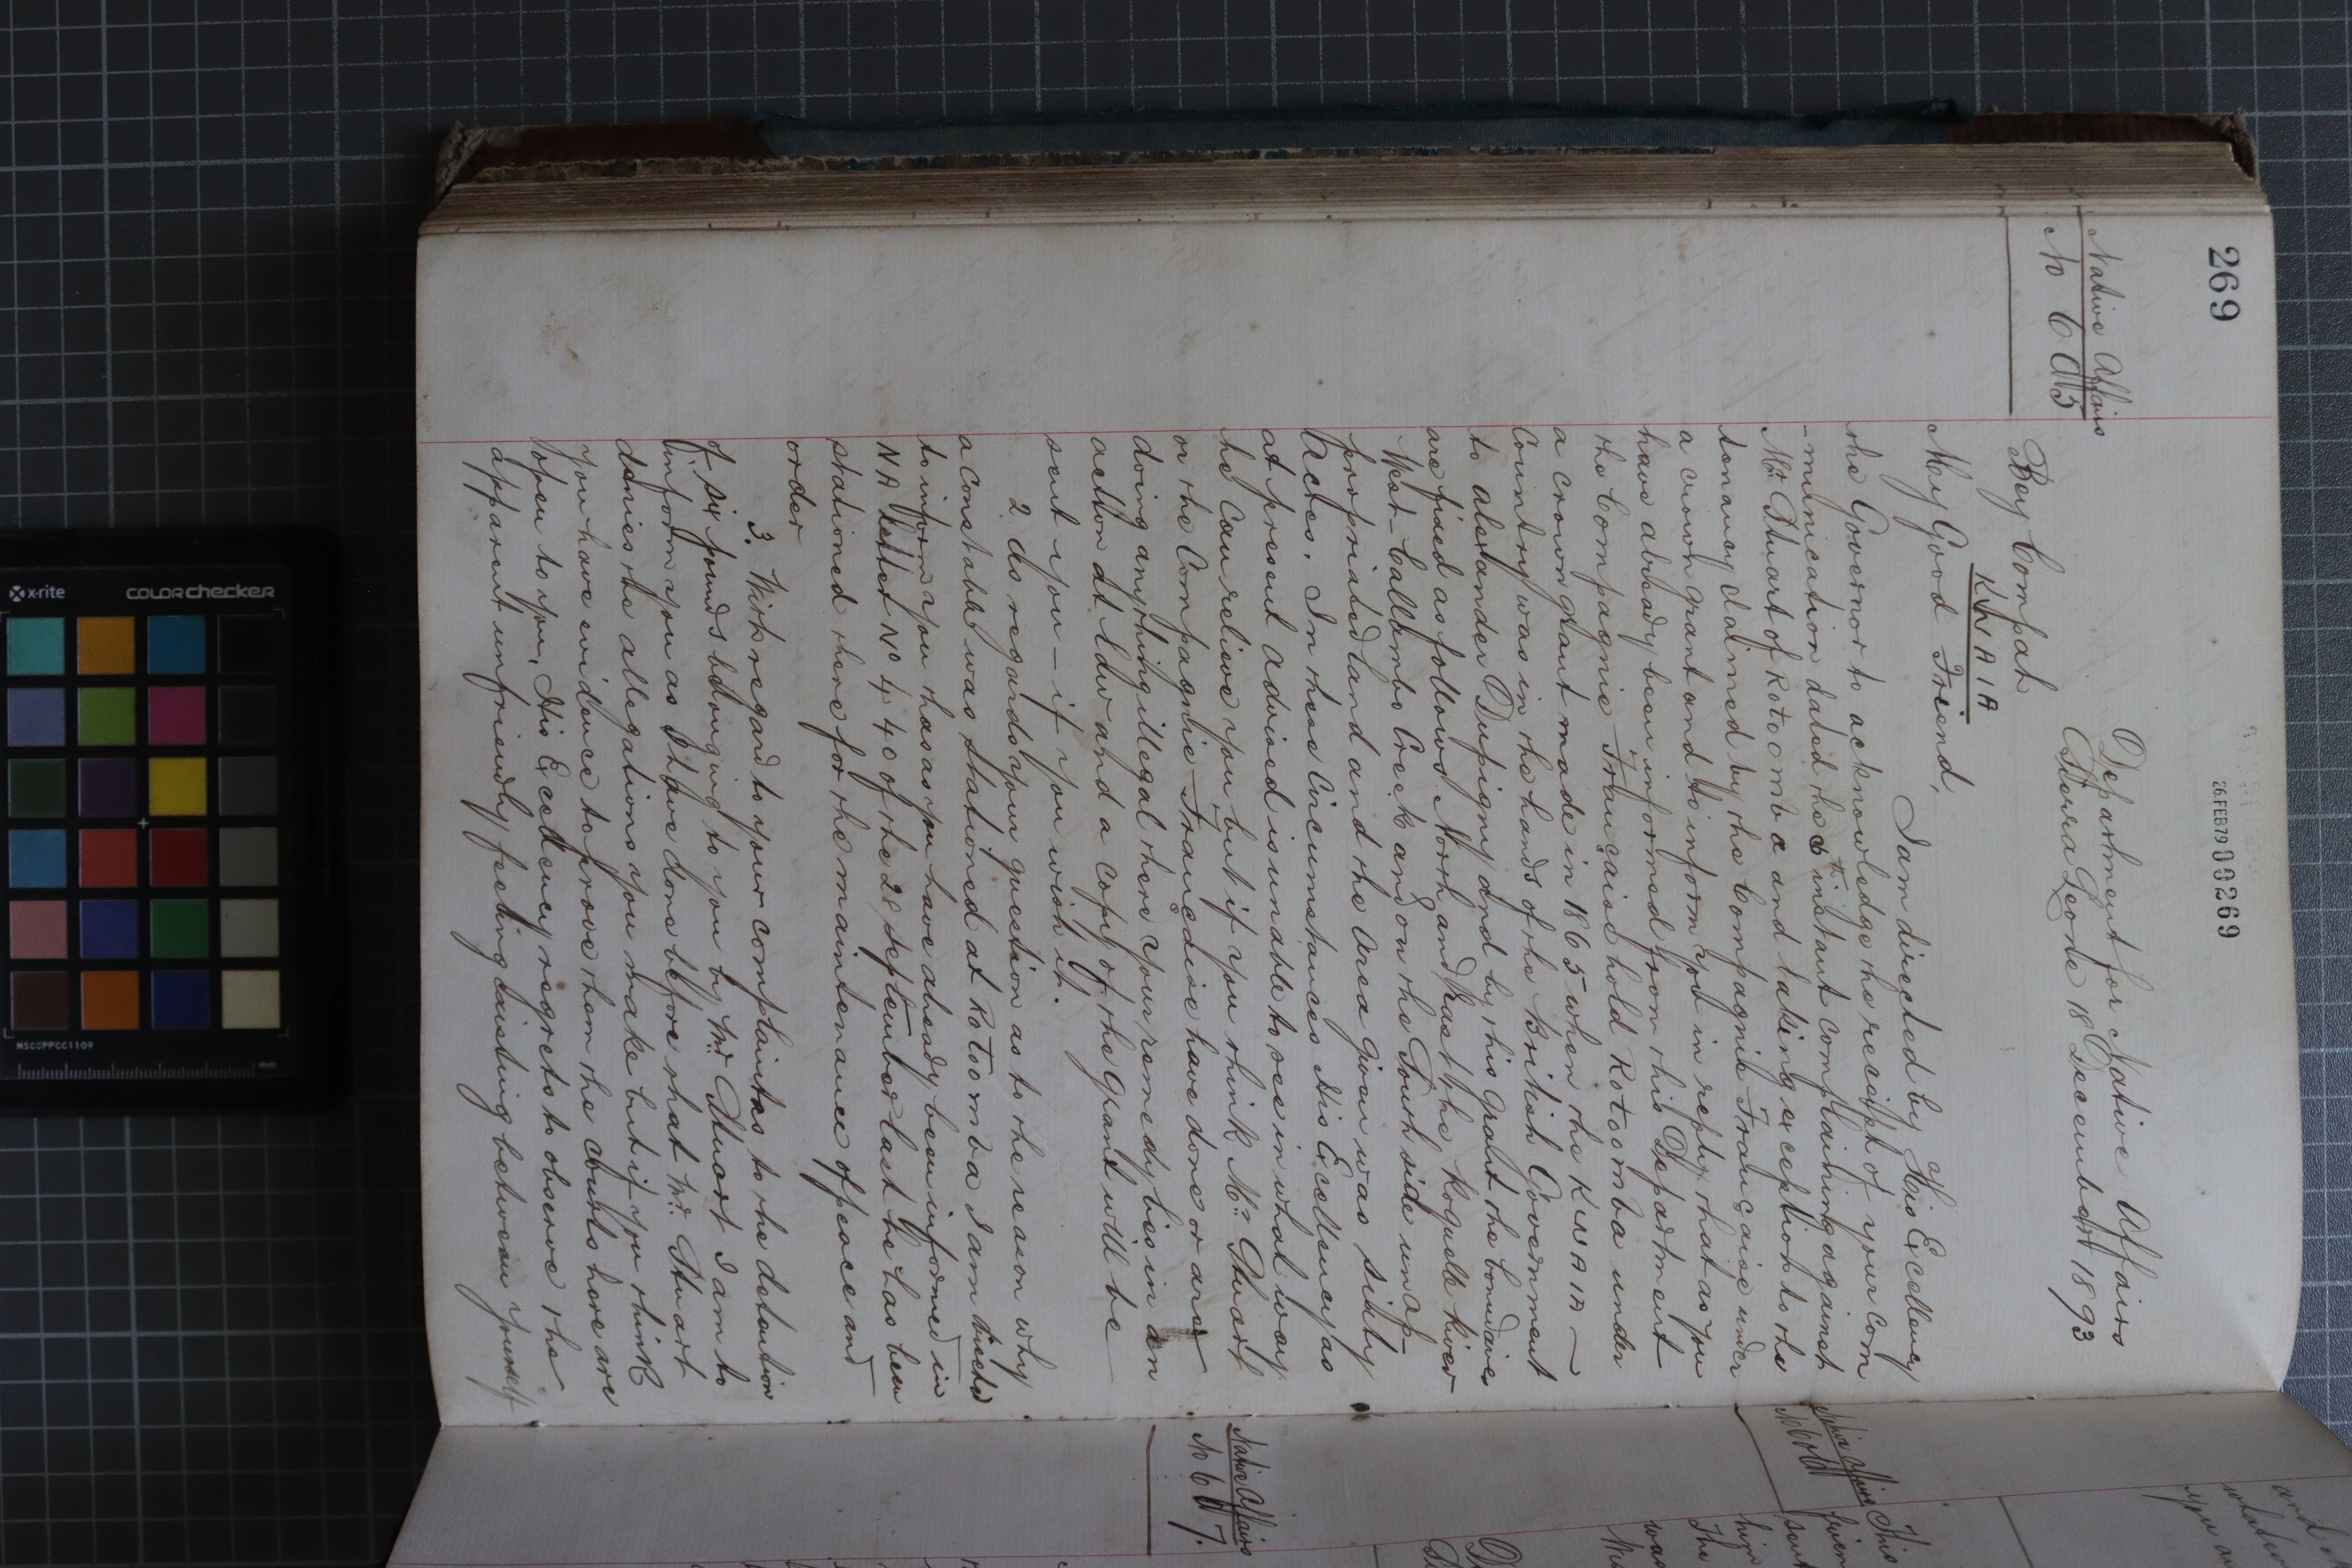 269
26FEB79 00269
Native Affairs
No 605
Department for Native Affairs
Sierra Leone 18 December 1893
Bey Compah
KWAIA
My Good Friend,
I am directed by His Excellency
the Governor to acknowledge the receipt of your com
-munication dated the 6th instant complaining against
Mr Stuart of Rotoomba and taking exception to the
tenancy claimed by the Compagnie Française under
a crown grant and to inform you in reply that as you
have already been informed from this Department
the Compagnie Française hold Rotoomba under
a crown grant made in 1865 when the KWAIA
Country was in the hands of the British Government
to alexander Dupigny and by this grant the boundaries
are fixed as follows North and East the Roquelle River
West Callambo Creek and on the South side unap-
propriated land and the area given was sixty
Acres. In these Circumstances His Excellency as
at present advised is unable to see in what way
he can relieve you but if you think Mr Stuart
or the Compagnie Française have done or are
doing anything illegal there your remedy lies in an
action at Law and a copy of the grant will be
sent you - if you wish it.
2 As regards your question as to the reason why
a Constable was stationed at Rotoomba I am directed
to inform you that as you have already been informed in
NA Letter No 440 of the 28 September last he has been
stationed there for the maintenance of peace and
order
3. With regard to your complaints to the detention
of six pounds belonging to you by Mr Stuart I am to
inform you as I have done before that Mr Stuart
denies the allegations you make but if you think
you have evidence to prove them the courts here are
open to you. His Excellency regrets to observe the
apparent unfriendly feeling existing between yourself
Native Affairs
Native Affairs
No 607.
This
sent
him
The
was
and
you a